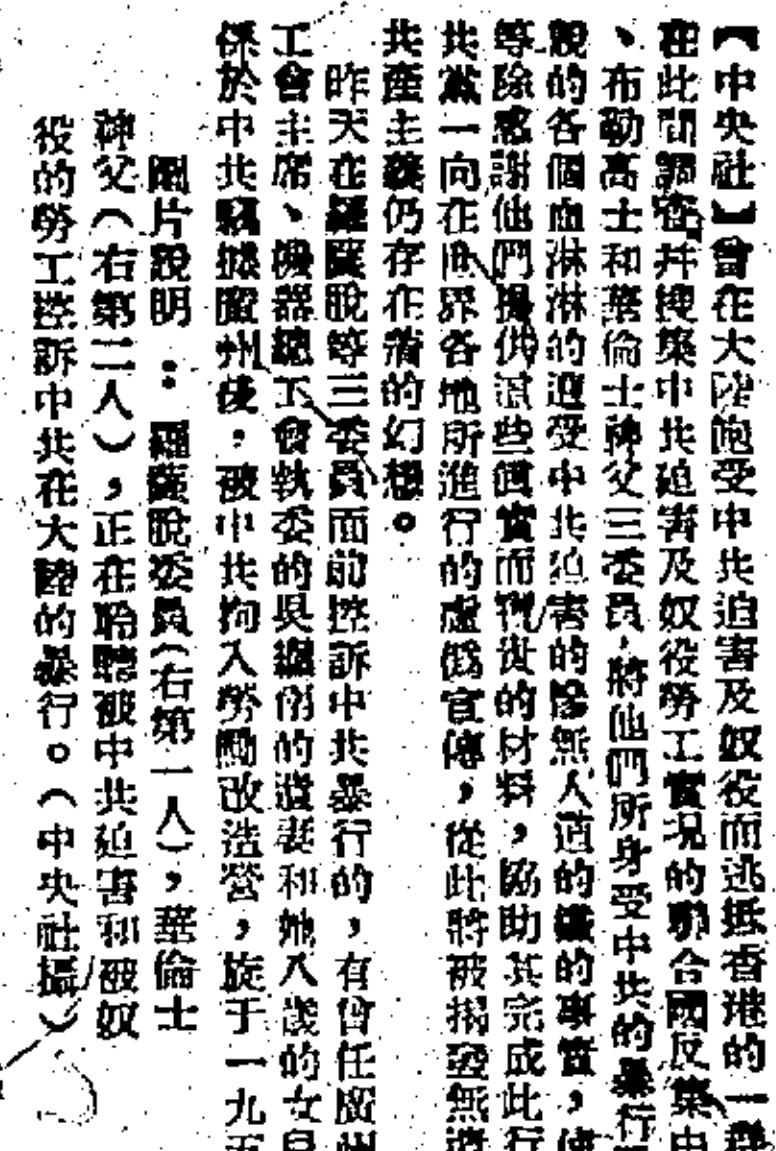 【中央社】曾在大陸飽受中共迫害及奴役而逃抵香港的一群
在此間調查并搜集中共迫害及奴役勞工實況的聯合國反集中
、布勒高士和華倫士神父三委員，將他們所身受中共的暴行
親的各個血淋淋的遭受中共迫害的慘無人道的鐵的事實，使
等除感謝他們提供這些真實而寶貴的材料，協助其完成此行
共黨一向在世界各地所進行的虛偽宣傳，從此將被揭發無遺
共產主義仍存在着的幻想。
昨天在羅薩脫等三委員面前控訴中共暴行的，有曾任廣州
工會主席、機器總工會執委的吳繼的遺妻和她八歲的女兒
係於中共竊據廣州後，被中共拘入勞動改造營，旋于一九五
圖片說明：羅薩脫委員（右第一人），華倫士
神父（右第二人），正在聆聽被中共迫害和被奴
役的勞工控訴中共在大陸的暴行。（中央社攝）